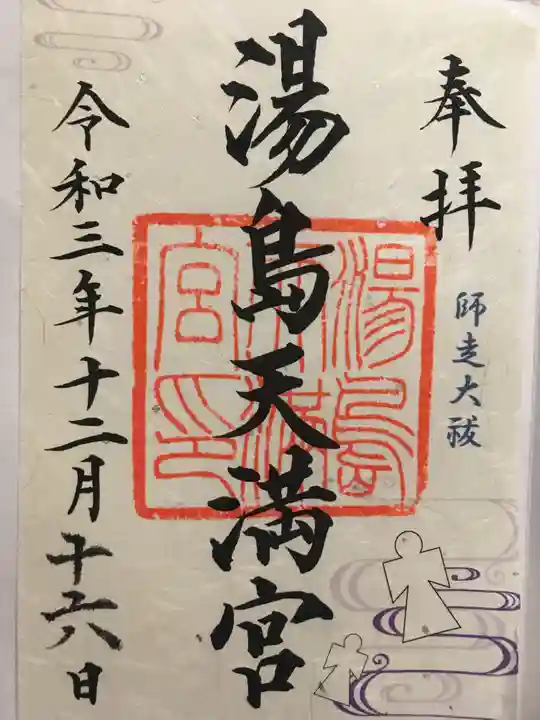 奉拝
師走大祓
湯島天満宮
湯島
天満
宮印
令和三年十二月十六日